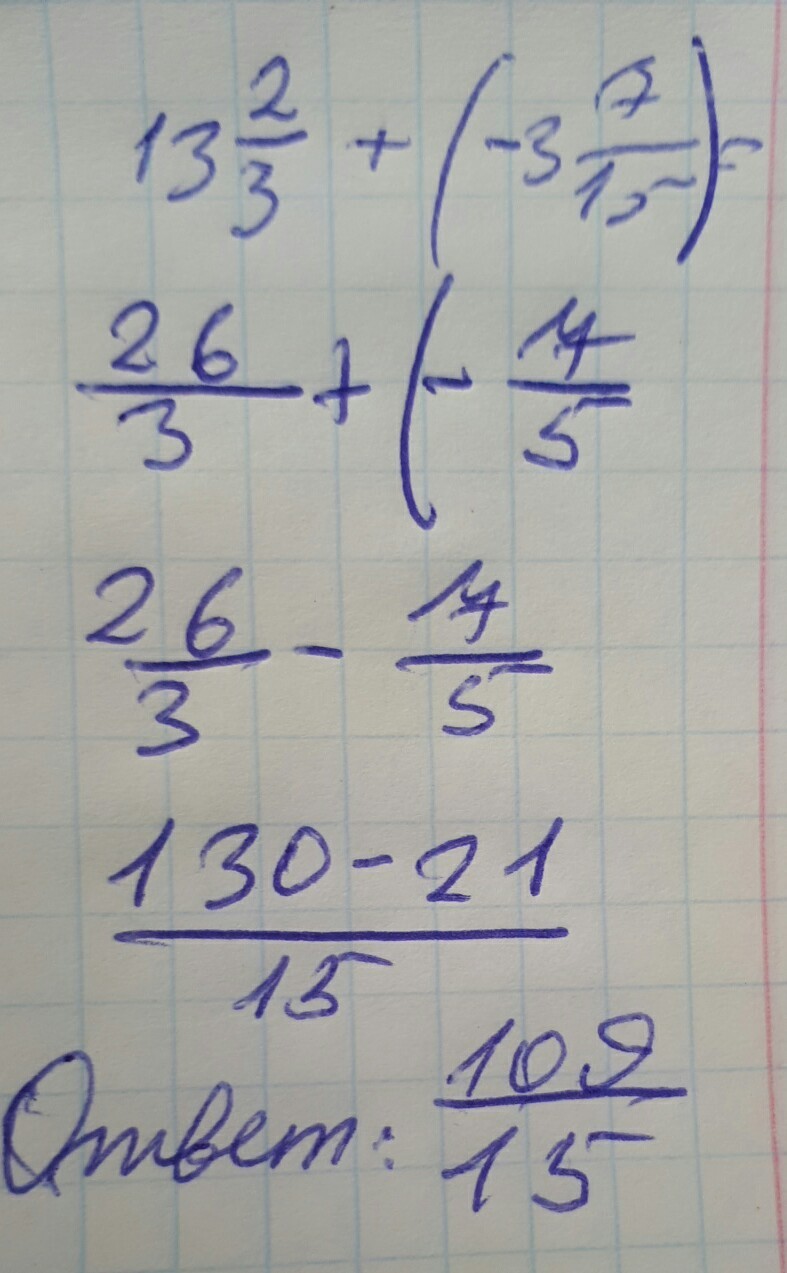 13 2/3 + (-3 7/15) =
26/3 + (- 17/5
26/3 - 17/5
130-21/15
Ответ: 109/15